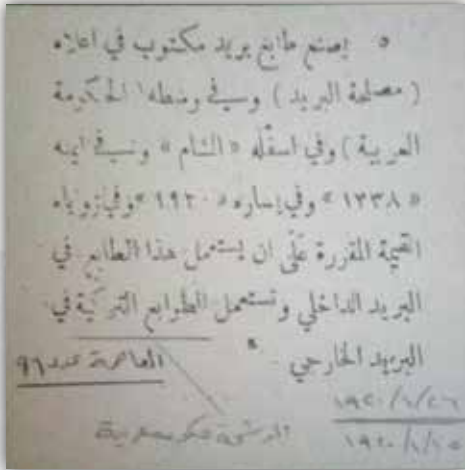 ٥ يصنع طابع بريد مكتوب في اعلاه
( مصلحة البريد ) وفي وسطه ( الحكومة
العربية ) وفي اسفله « الشام » وفي يمينه
« ١٣٣٨ » وفي يساره « ١٩٢٠ » وفي زوياه
القيمة المقررة على ان يستعمل هذا الطابع في
البريد الداخلي وتستعمل الطوابع التركية في
البريد الخارجي
العاصمة عدد ٩٦